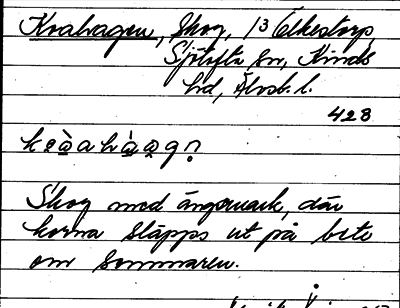 Kvahagen, Skog, 13 Älkestorp
Sjötofta sn, Kinds
hd, Älvsb. l.
428
Skog med ängsmark, där
korna släpps ut på bete
om sommaren.